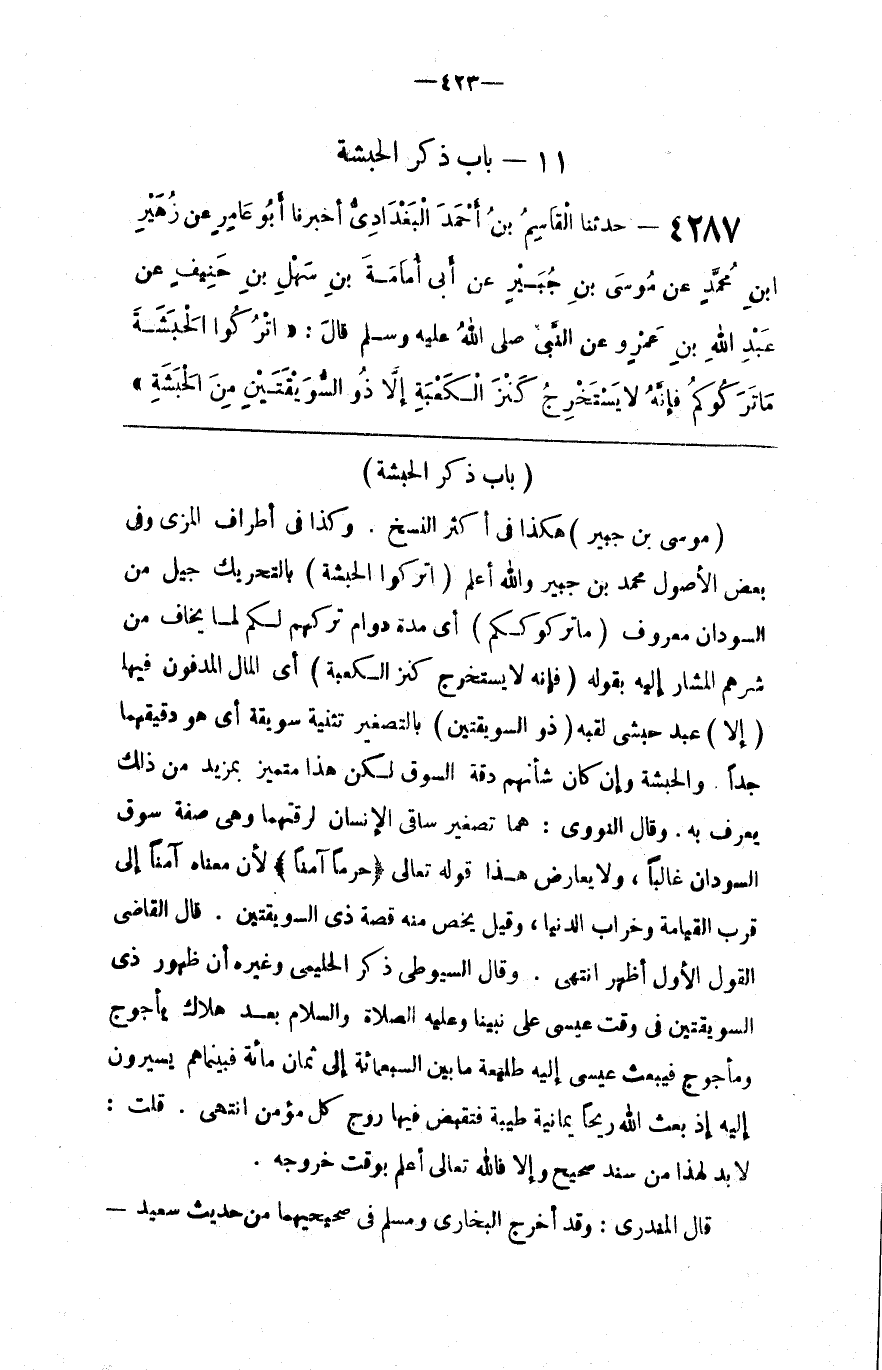 —٤٢٣—
١١ — باب ذكر الحبشة
٤٢٨٧ — حدثنا الْقَاسِمُ بنُ أَحْمَدَ الْبَغْدَادِىُّ أخبرنا أَبُو عَامِرٍ عن زُهَيْرِ
ابنِ مُحمَّدٍ عن مُوسَى بنِ جُبَيْرٍ عن أَبى أُمَامَةَ بنِ سَهْلِ بنِ حَنِيفٍ عن
عَبْدِ اللهِ بنِ عَمْرٍو عن النَّبىِّ صلى اللهُ عليه وسلم قالَ : « اتْرُكُوا الْحَبَشَةَ
مَاتَرَكُوكُمْ فإِنَّهُ لايَسْتَخْرِجُ كَنْزَ الْكَعْبَةِ إلَّا ذُو السُّوَيْقَتَيْنِ مِنَ الْحَبَشَةِ »
( باب ذكر الحبشة )
( موسى بن جبير ) هكذا فى أكثر النسخ . وكذا فى أطراف المزى وفى
بعض الأصول محمد بن جبير والله أعلم ( اتركوا الحبشة ) بالتحريك جيل من
السودان معروف ( ماتركوكم ) أى مدة دوام تركهم لكم لما يخاف من
شرهم المشار إليه بقوله ( فإنه لايستخرج كنز الكعبة ) أى المال المدفون فيها
( إلا ) عبد حبشى لقبه ( ذو السويقتين ) بالتصغير تثنية سويقة أى هو دقيقهما
جداً . والحبشة وإن كان شأنهم دقة السوق لكن هذا متميز بمزيد من ذلك
يعرف به . وقال النووى : هما تصغير ساقى الإنسان لرقتهما وهى صفة سوق
السودان غالباً ، ولايعارض هذا قوله تعالى ﴿حرماً آمناً﴾ لأن معناه آمناً إلى
قرب القيامة وخراب الدنيا ، وقيل يخص منه قصة ذى السويقتين . قال القاضى
القول الأول أظهر انتهى . وقال السيوطى ذكر الحليمى وغيره أن ظهور ذى
السويقتين فى وقت عيسى على نبينا وعليه الصلاة والسلام بعد هلاك يأجوج
ومأجوج فيبعث عيسى إليه طليعة مابين السبعمائة إلى ثمان مائة فبينماهم يسيرون
إليه إذ بعث الله ريحاً يمانية طيبة فتقبض فيها روح كل مؤمن انتهى . قلت :
لابد لهذا من سند صحيح وإلا فالله تعالى أعلم بوقت خروجه .
قال المنذرى : وقد أخرج البخارى ومسلم فى صحيحيهما من حديث سعيد —